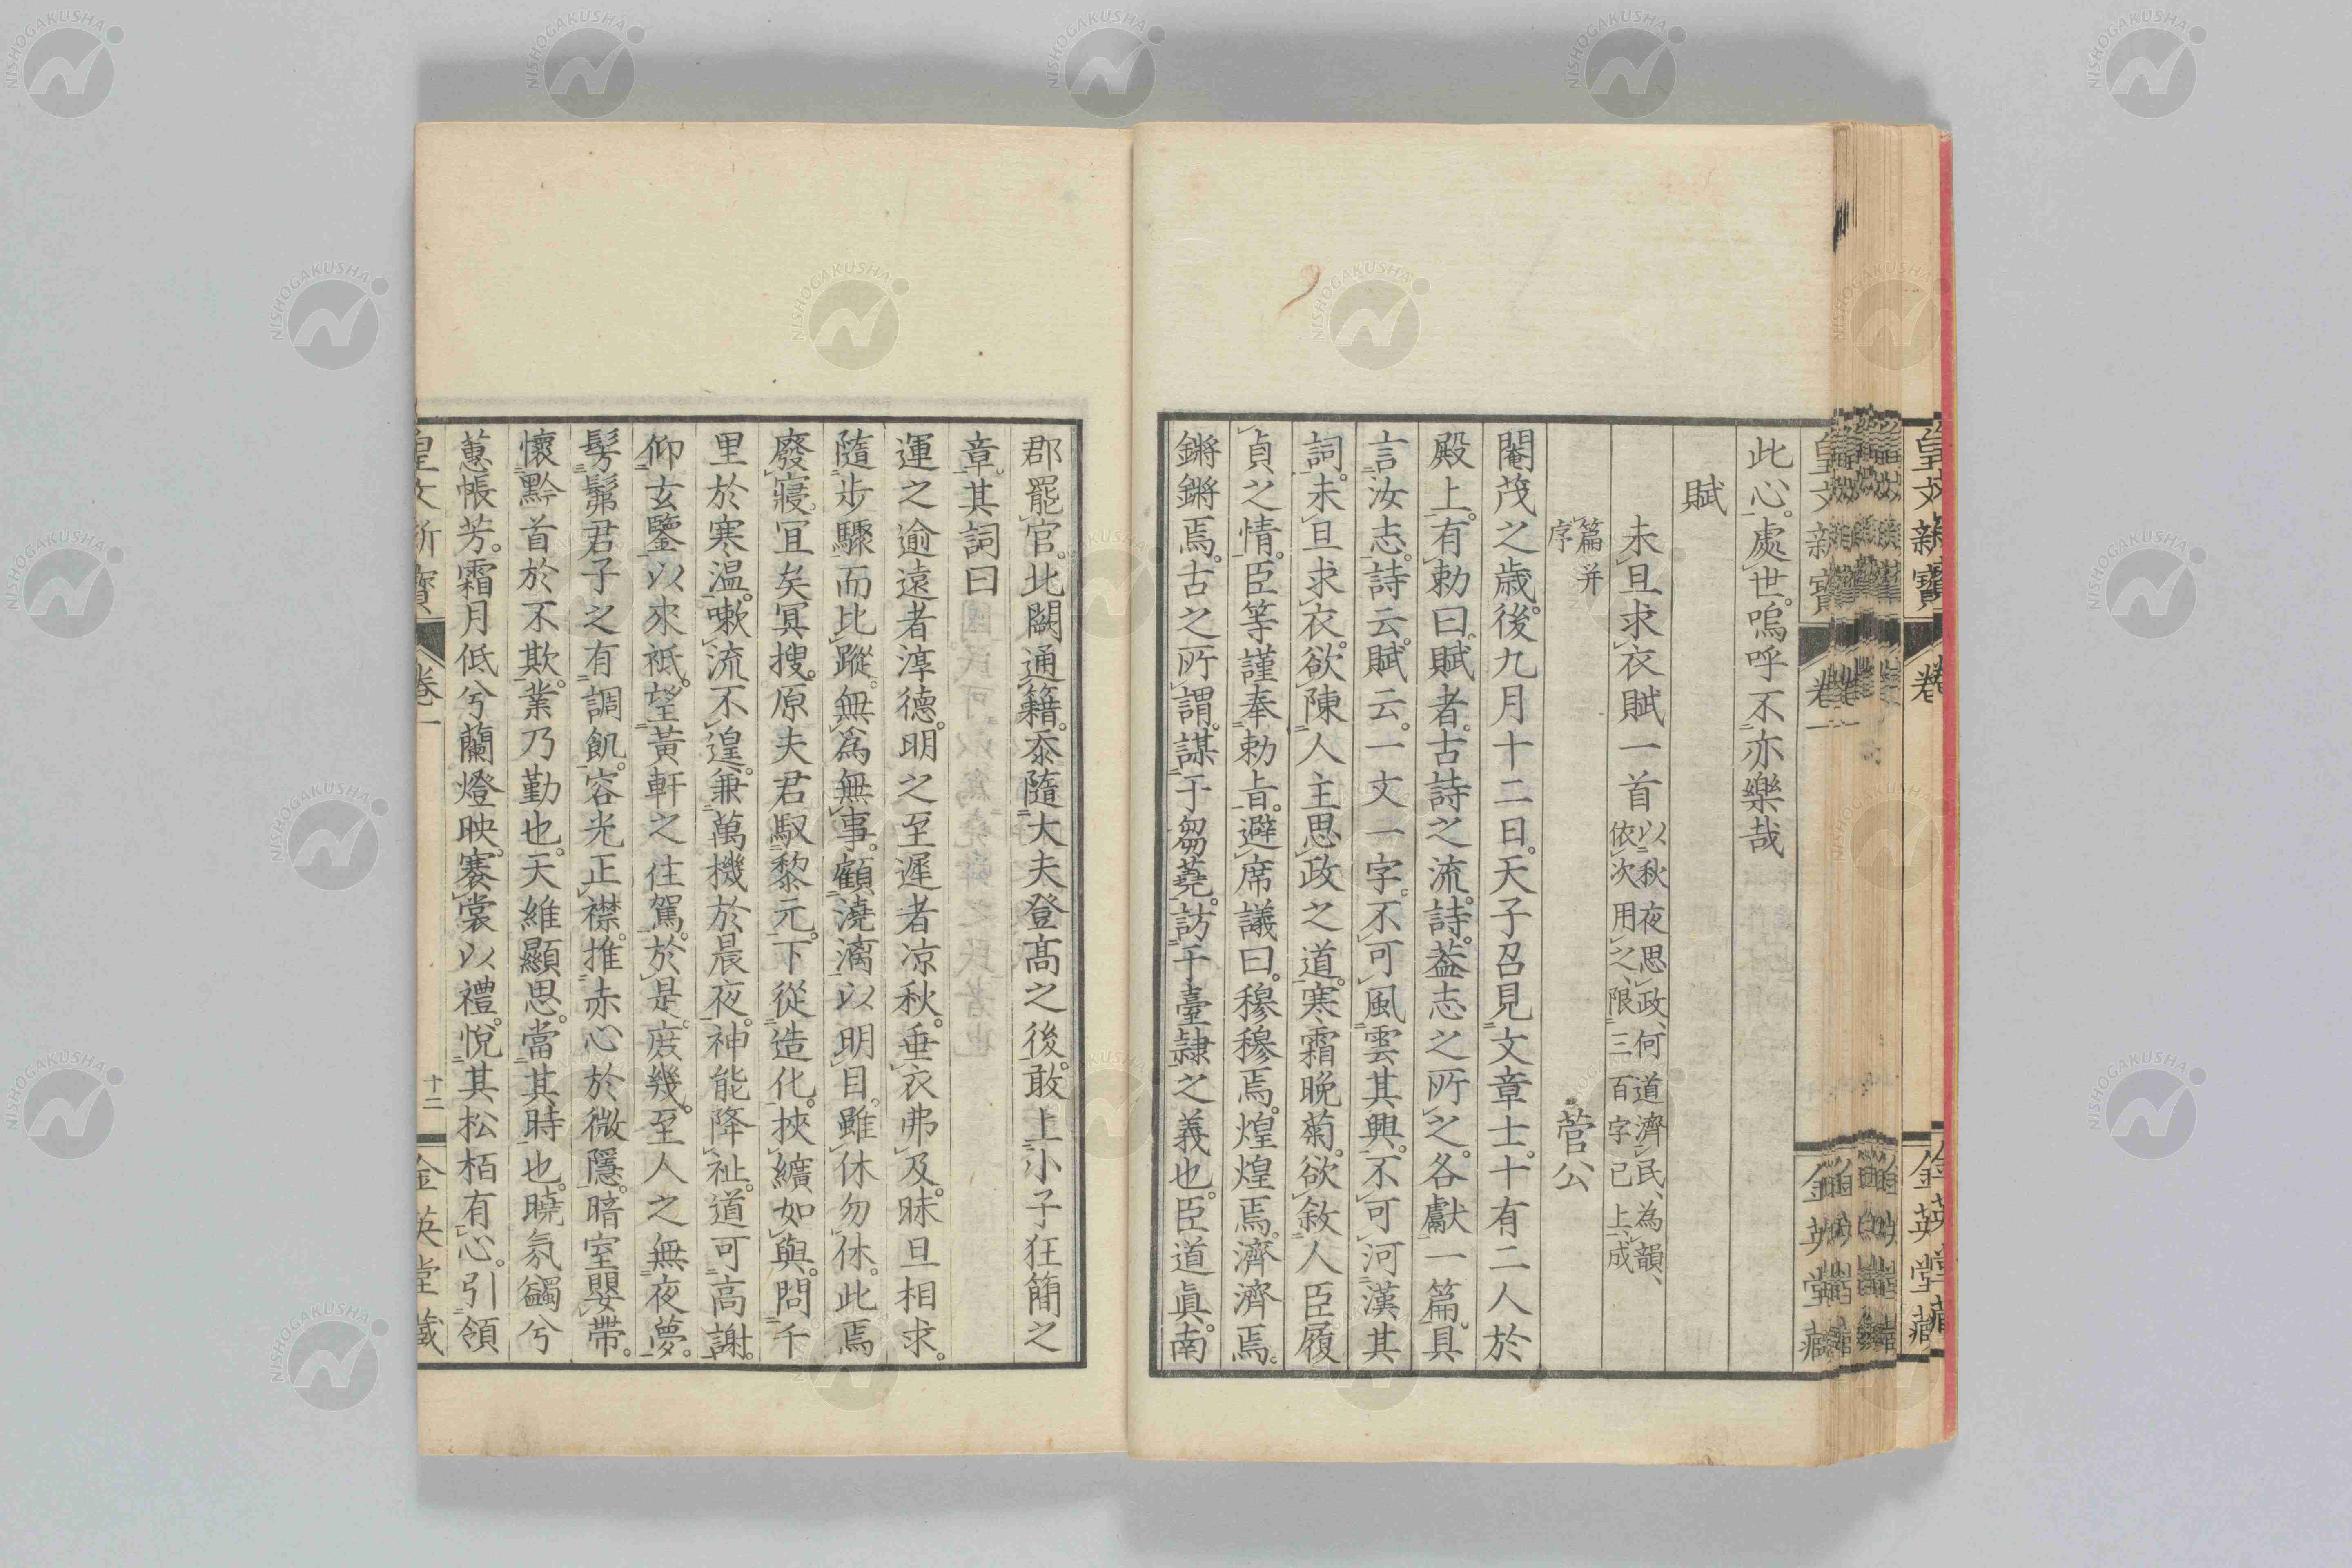 此心。處世。嗚呼不亦樂哉
賦
未旦求衣賦一首 以秋夜思政、何道濟民、為韻、
依次用之、限三百字已上成
篇并
序
菅公
閹茂之歲。後九月十二日。天子召見文章士。十有二人於
殿上。有勅曰。賦者。古詩之流。詩。蓋志之所之。各獻一篇。具
言汝志。詩云。賦云。一文一字。不可風雲其興。不可河漢其
詞。未旦求衣。欲陳人主思政之道。寒霜晚菊。欲敘人臣履
貞之情。臣等謹奉勅旨。避席議曰。穆穆焉。煌煌焉。濟濟焉。
鏘鏘焉。古之所謂。謀于芻蕘。訪于臺隷之義也。臣道眞。南
郡罷官。北闕通籍。忝隨大夫登高之後。敢上小子狂簡之
章。其詞曰
運之逾遠者淳德。明之至遲者凉秋。垂衣弗及。昧旦相求。
隨步驟而比蹤。無爲無事。顧澆漓以明目。雖休勿休。此焉
廢寢。冝矣冥搜。原夫君馭黎元。下從造化。挾纊如與。問千
里於寒温。嗽流不遑。兼萬機於晨夜。神能降祉。道可高謝。
仰玄鑒以來祗。望黃軒之往駕。於是庶幾。至人之無夜夢。
髣髴君子之有調飢。容光正襟。推赤心於微隱。暗室嬰帶。
懷黔首於不欺。業乃勤也。天維顯思。當其時也。曉氛蠲兮
蕙帳芳。霜月低兮蘭燈映。褰裳以禮。悅其松栢有心。引領
皇文新寶 卷一 十二 金英堂藏